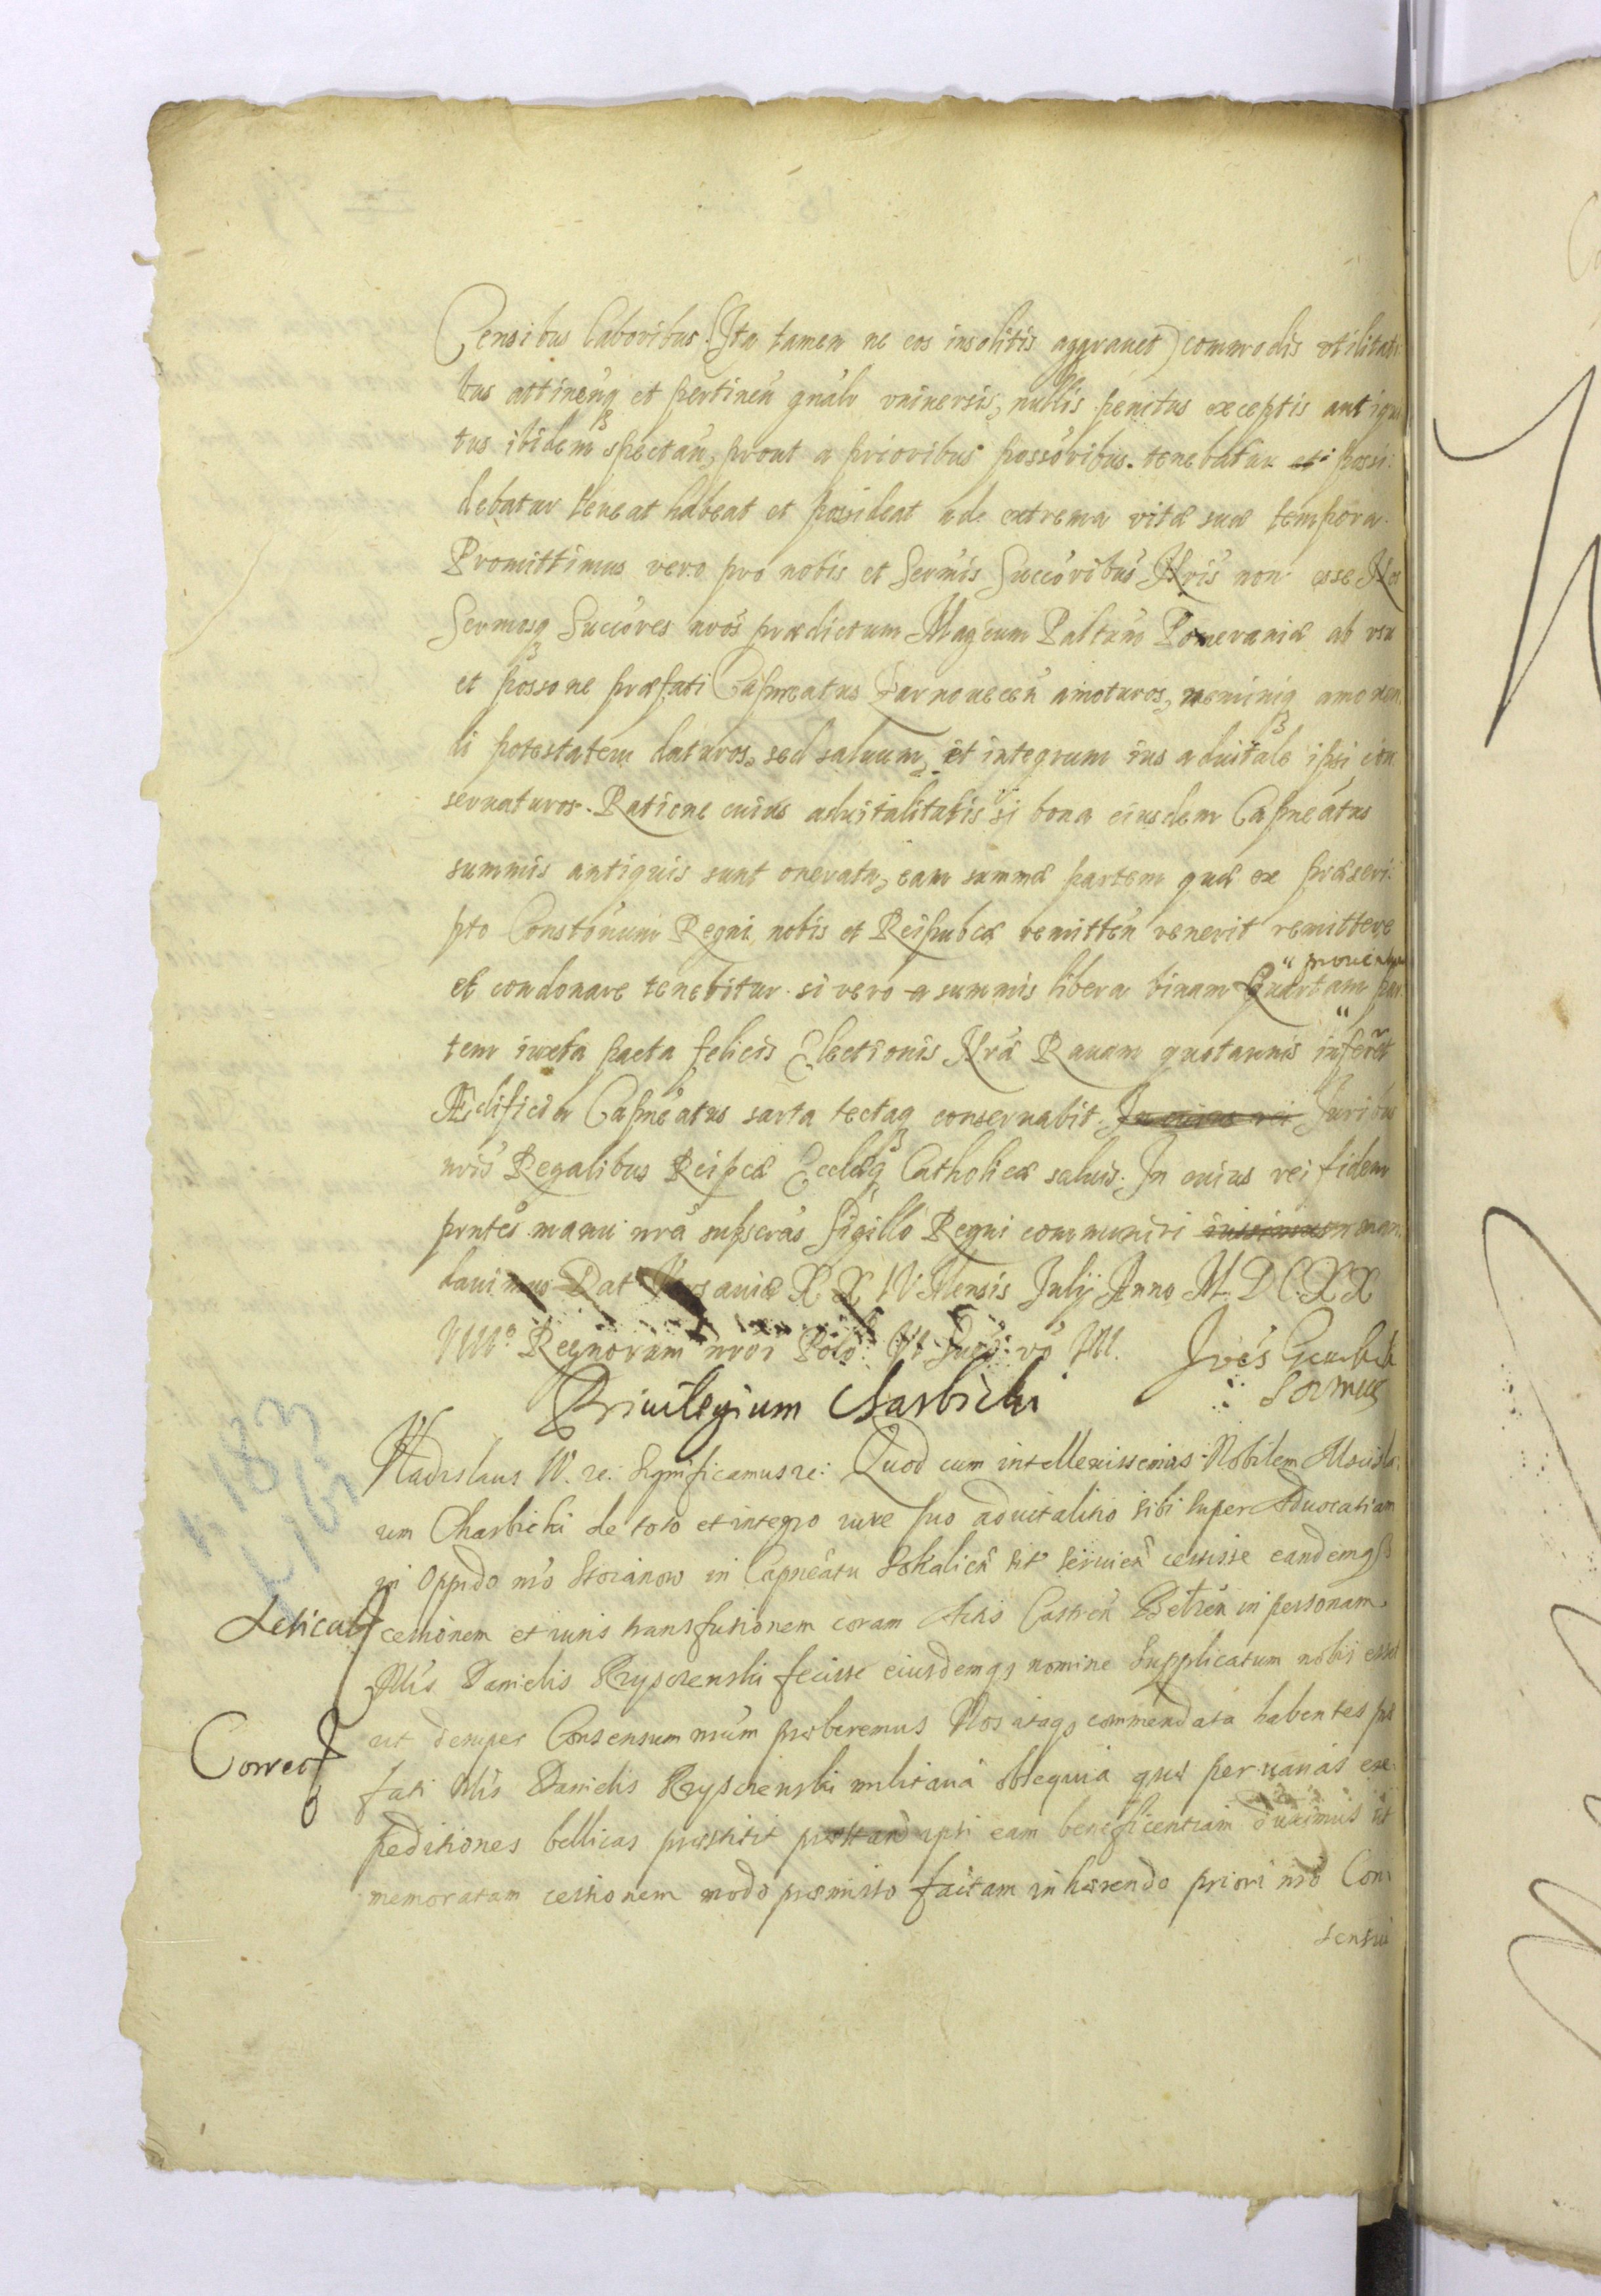 Censibus laboribus (Ita tamen ne eos insolitis aggrauet) commodis vtilitati
bus attineñq3 et pertineñ gnãlr vniuersis, nullis penitus exceptis antiqui
tus ibidem spectañ, prout a prioribus possõribus tenebatur et possi:
debatur teneat habeat et possideat ad extrema vitæ suæ tempora.
Promittimus vero pro nobis et Sermis Succõribus Nrĩs non esse Nos
Sermosq3 Succõres nrõs prædictum Magcum Paltum Pomeraniæ ab vsu
et possone præfati Capneatus Tarnoueceñ amoturos, neminiq3 amouen
di potestatem daturos, sed saluum, et integrum ius aduitale ipsi con
seruaturos. Ratione cuius aduitalitatis si bona eiusdem Capneãtus
summis antiquis sunt onerata, eam summæ partem quæ ex præscri:
pto Constõnum Regni nobis et Reipubcæ remitteñ venerit remittere
et condonare tenebitur. si vero a summis libera binam Quartam par
" prouentuu
tem iuxta pacta felicis Electionis Nræ Rauam quotannis inferet
Ædificia Capneãtus sarta tectaq3 conseruabit. In cuius rei Juribus
nrĩs Regalibus Reipcæ Ecclæq3 Catholicæ saluis. In cuius rei fidem
pntes manu nrã subscrãs Sigillo Regni communiri iussimus man
dauimus Dat Varsauiæ XXIV Mensis Julij Anno M.DC.XX
Regnorum nrõr Polõ
Priuilegium Charbicki
Vladislaus IV. re: Significamus re: Quod cum intellexissemus Nobilem
um Charbicki de toto et integro iure suo aduitalitio sibi super Aduocatiam
in Oppido nrõ Stoianow in Capneãtu Sokalieñ sit seruieñ cessisse eandemq3
Leticat cessionem et iuris transfusionem coram Actis Castreñ Belzeñ in personam
Nlis Danielis fecisse eiusdemq3 nomine Supplicatum nobis esset
ut desuper Consensum nrũm præberemus Nos itaq3 commendata habentes præ
Correct
fati Nlis Danielis militaria obsequia quæ per varias ex
peditiones bellicas præstitit præstand ipsi eam beneficentiam duximus ut
memoratam cessionem modo præmisso factam inhærendo priori nrõ Con
sensui